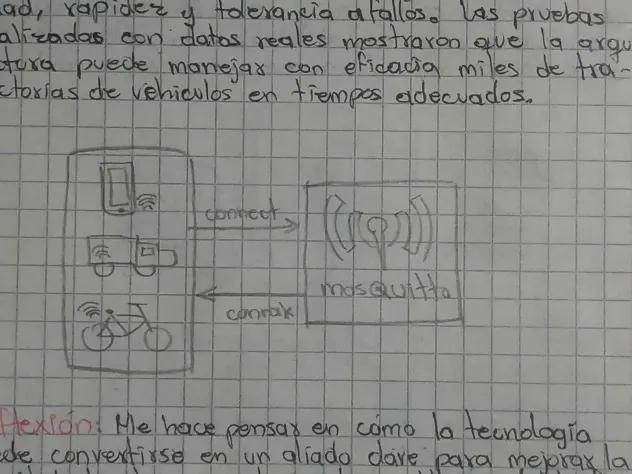 ad, rapidez y tolerancia a fallos. Las pruebas
alizadas con datos reales mostraron que la arqu
tura puede manejar con eficacia miles de tra-
ctorias de vehiculos en tiempos adecuados.
connect
mosquitto
connak
flexión: Me hace pensar en cómo la tecnología
de convertirse en un aliado clave para mejorar la